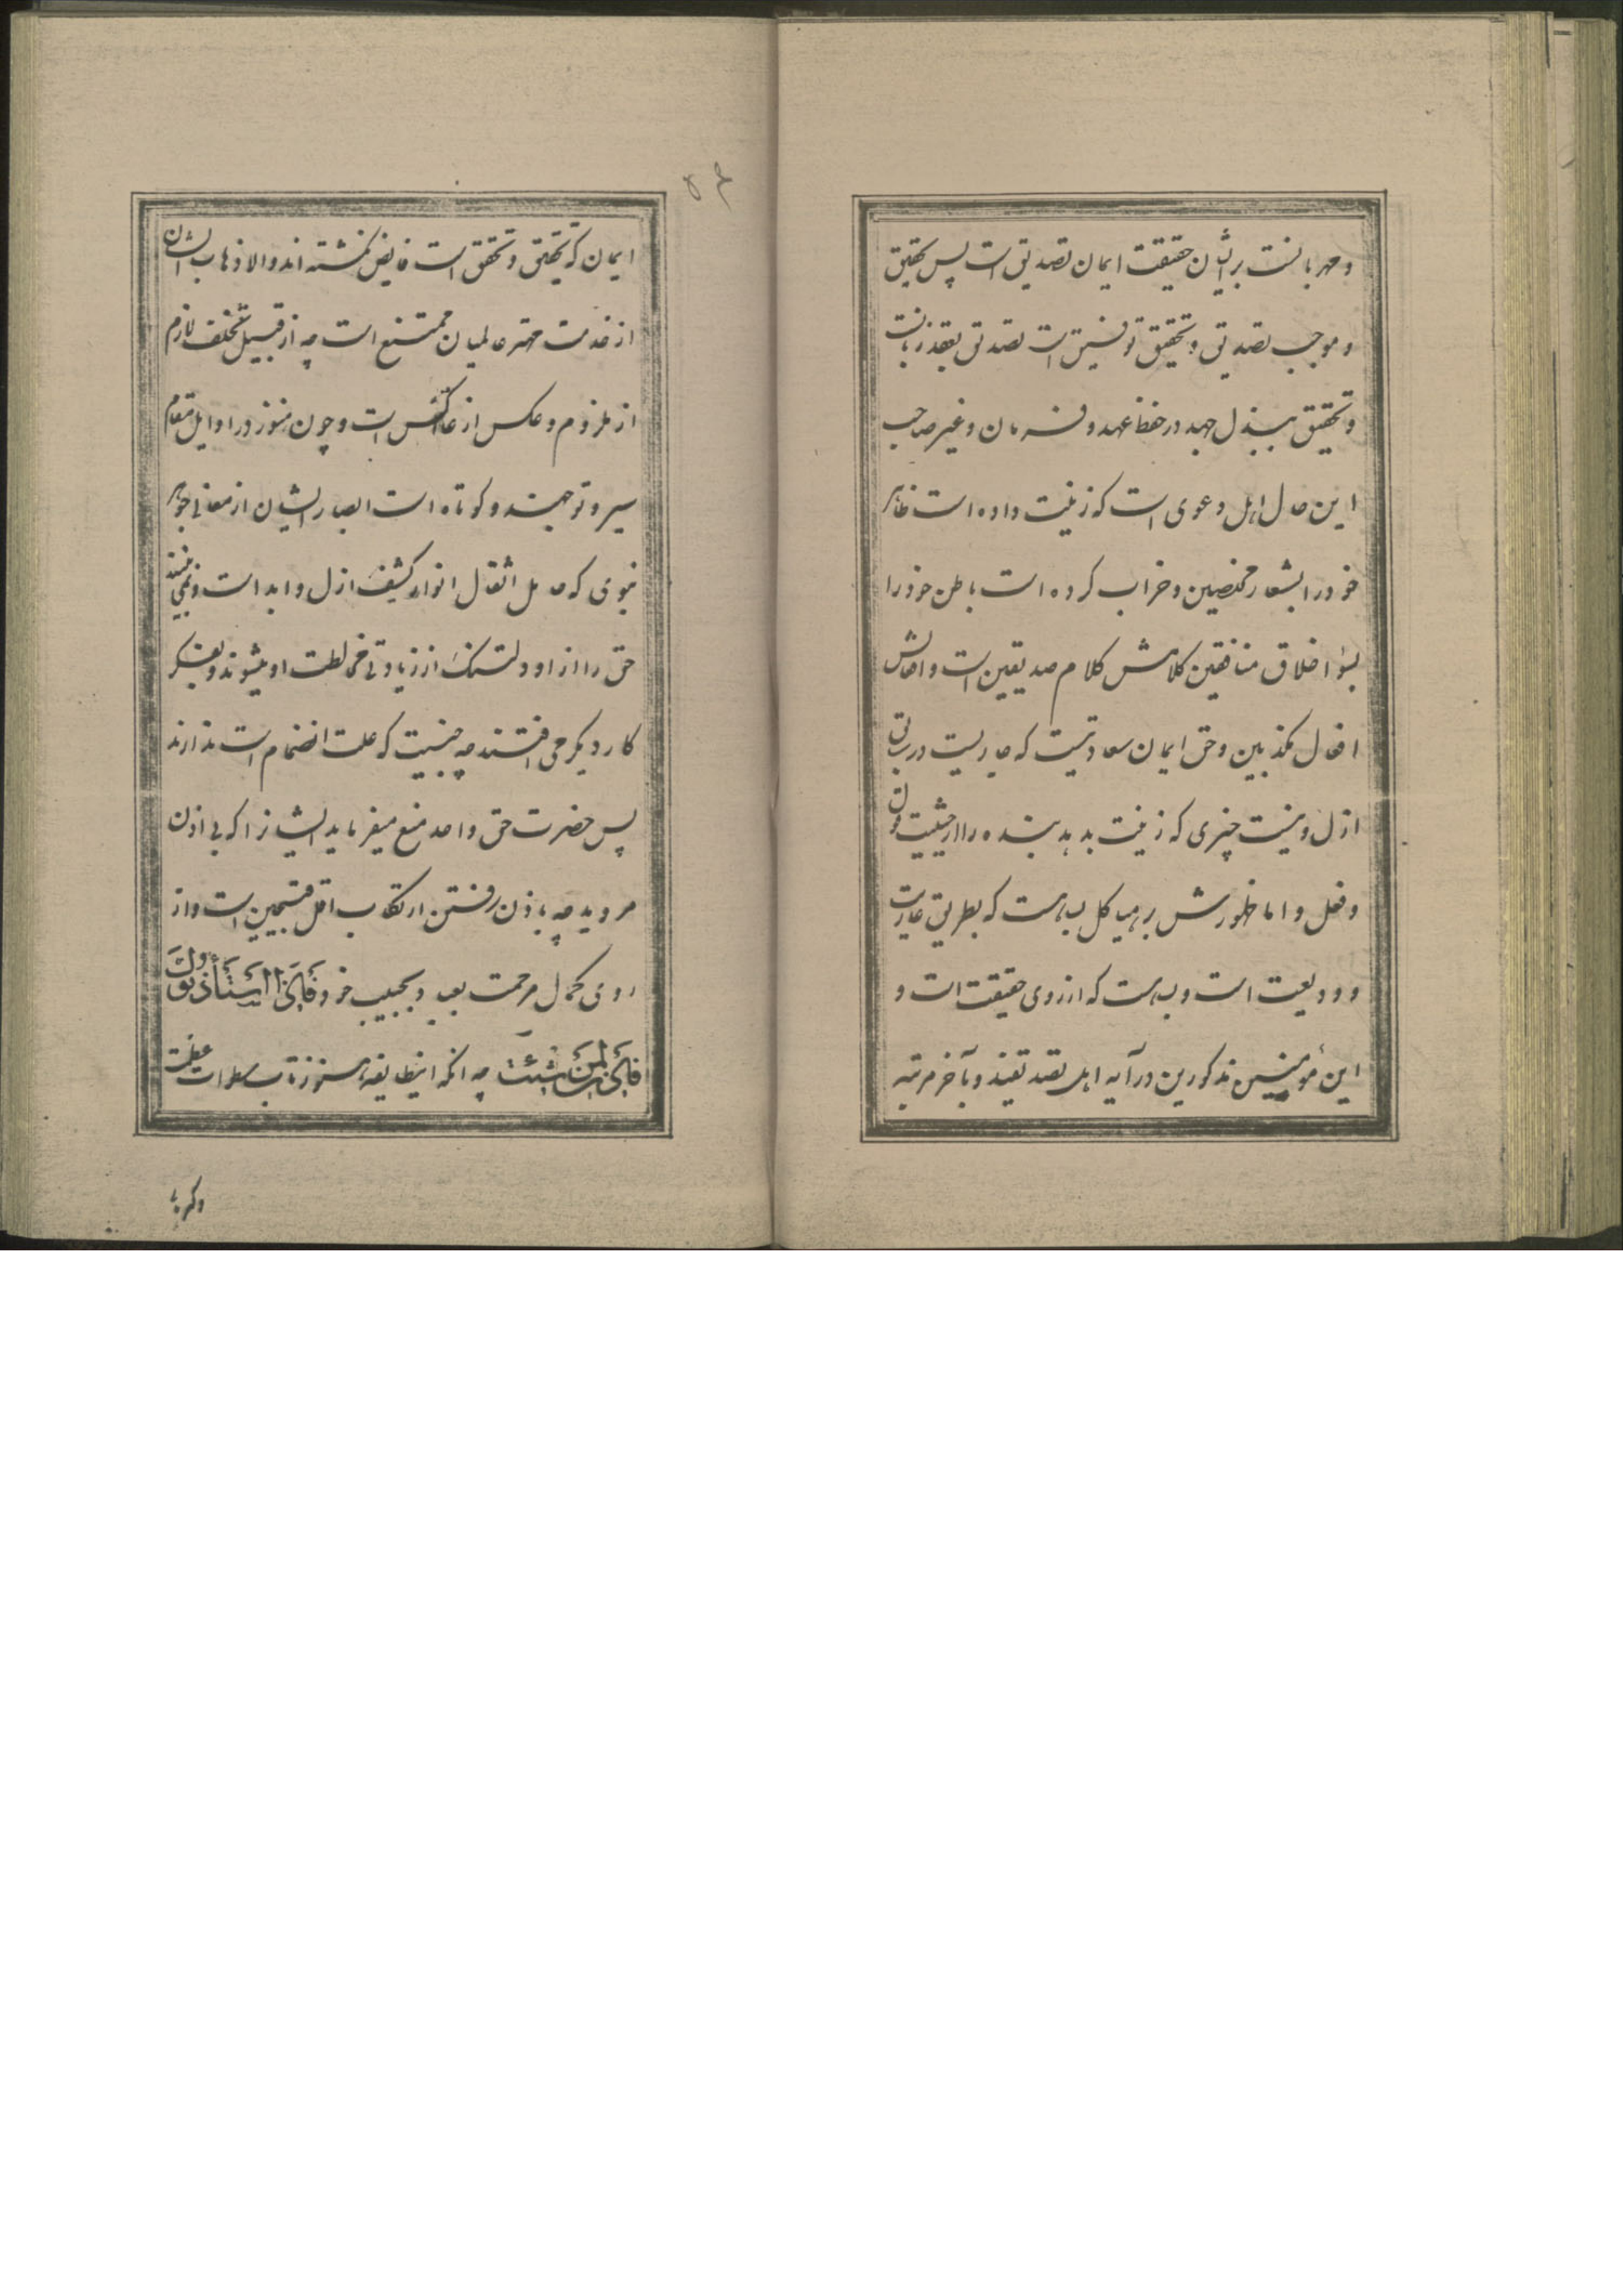 و مهربانست بر ایشان حقیقت ایمان تصدیق است پس تحقیق
و موجب تصدیق و تحقیق توفیق است تصدیق بعقد زبانست
و تحقیق ببذل جهد در حفظ عهد و فرمان و غیر صاحب
این حال اهل دعوی است که زینت داده است ظاهر
خود را بشعار مخلصین و خراب کرده است باطن خود را
بسوٴ اخلاق منافقین کلامش کلام صدیقین است و افعالش
افعال مکذبین و حق ایمان سعادتیست که جاریست در سابق
ازل و نیست چیزی که زینت بدهد بنده را از حیثیت قول
و فعل و اما ظهورش بر هیاکل بسا هست که بطریق عاریت
و ودیعت است و بسا هست که از روی حقیقت است و
این مؤمنین مذکورین در آیه اهل تصدیقند و بآخر مرتبه
۵۴
ایمان که تحقیق و تحقق است فایض نگشته اند والا ذهاب ایشان
از خدمت مهتر عالمیان ممتنع است چه از قبیل تخلف لازم
از ملزوم و عکس از عاکس است و چون هنوز در اوایل مقام
سیر و توجهند و کوتاه است ابصار ایشان از معانی جوهر
نبوی که حامل اثقال انوار کشف ازل و ابد است و نمی بینند
حق را از او دلتنک از زیادتی مخالطت او میشوند و بفکر
کار دیکر می افتند چه جنسیت که علت انضمام است ندارند
پس حضرت حق واحد منع میفرماید ایشانرا که بی اذن
مروید چه باذن رفتن ارتکاب اقل قبیحین است و از
روی کمال مرحمت بعباد و بحبیب خود فَاِذَا اسْتَأْذَنُوكَ
فَأْذَنْ لِمَنْ شِئْتَ چه انکه اینطایفه هنوز تاب سطوات عظمت
وکبریا